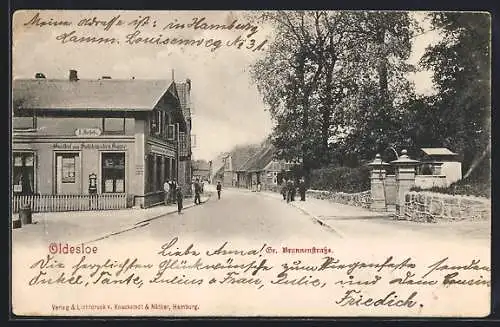 Meine Adresse ist: in Hamburg
Hamm. Louisenweg No 31.
Gasthof zum
Oldesloe
Gr. Brunnenstraße.
Liebe Anna!
Die herzlichen Glückwünsche zum Wiegenfeste, senden
Onkel, Tante, Julius u Frau, Julie, und dein Cousin
Friedrich.
Verlag & Lichtdruck v. Knackstedt & Näther, Hamburg.